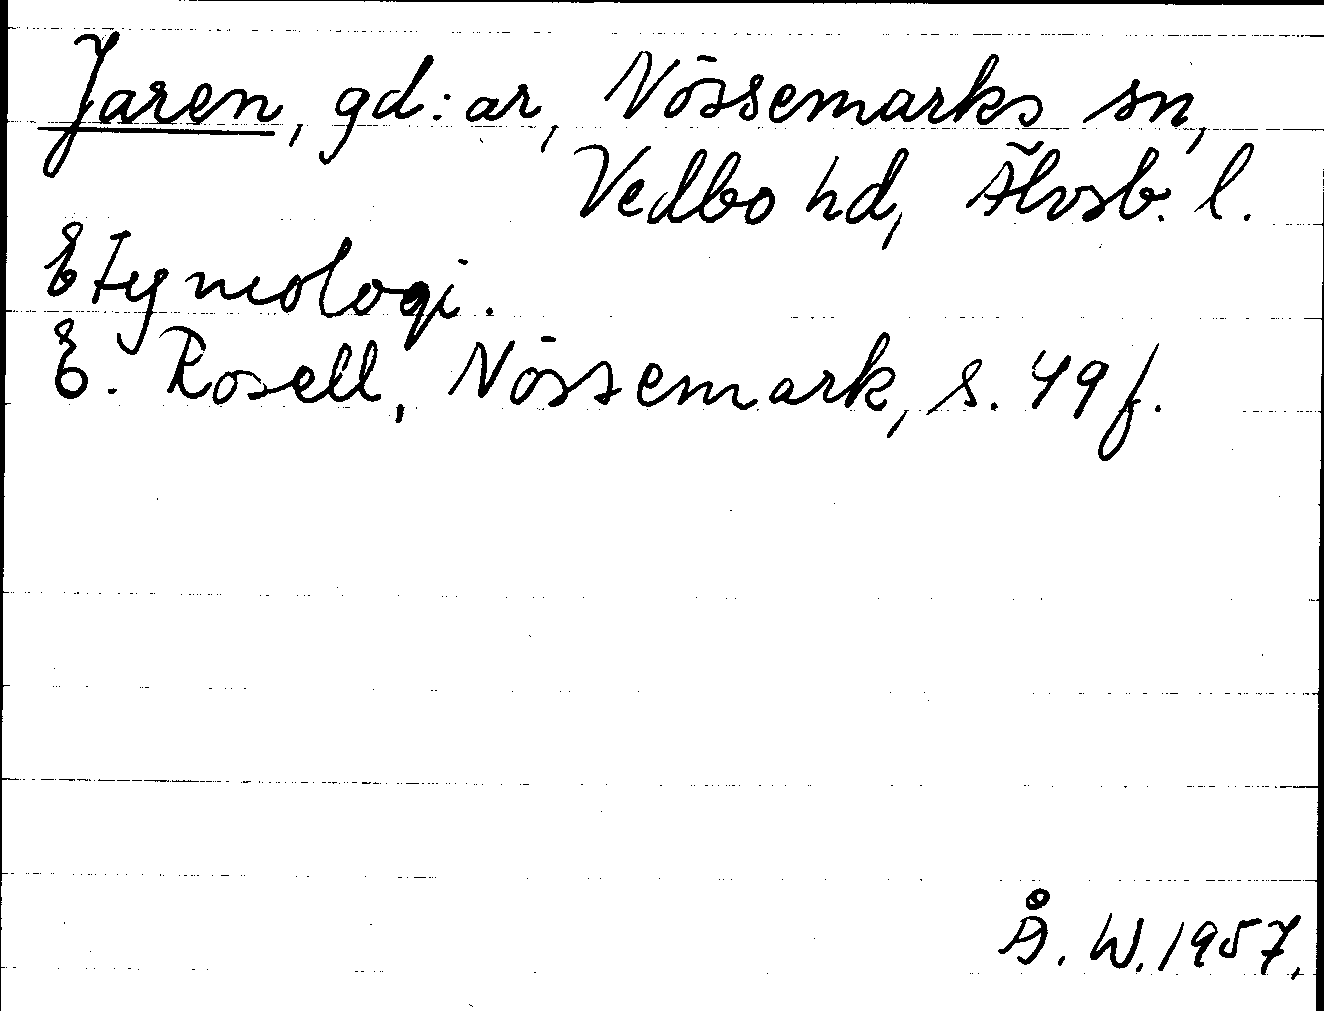 Jaren, gd:ar, Nössemarks sn,
Vedbo hd, Älvsb. l.
Etymologi.
E. Rosell, Nössemark, s. 49 f.
Å. W. 1957.